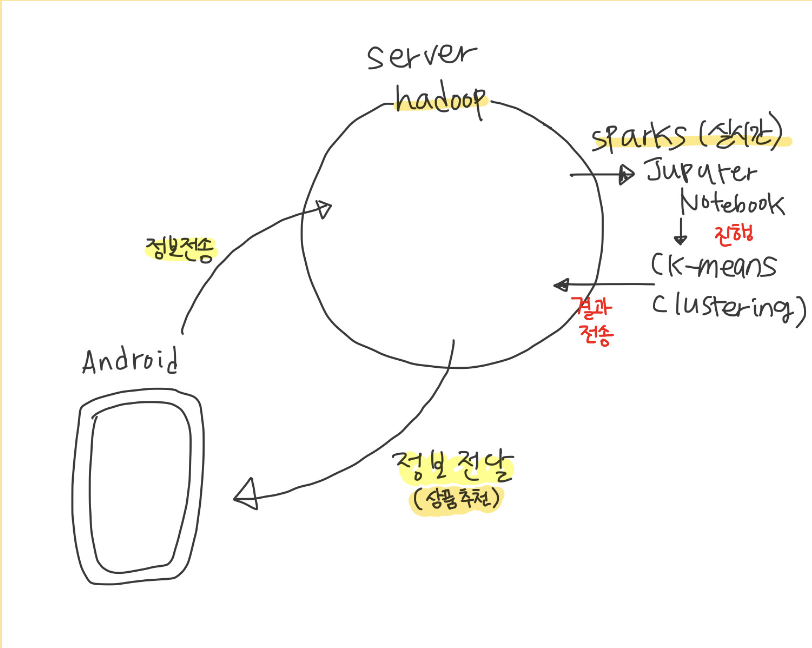 server
hadoop
sparks (실시간)
Juputer
Notebook
진행
CK-means
Clustering)
결과
전송
정보전송
Android
정보 전달
(상품추천)